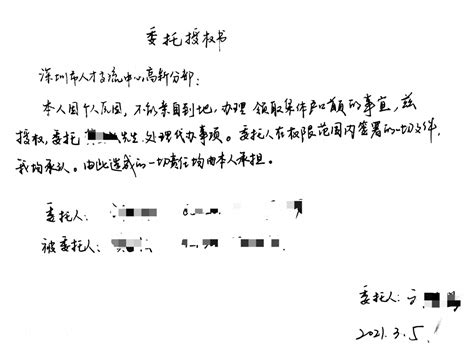 委托授权书
深圳市人才交流中心高新分部：
本人因个人原因，不能亲自到地，办理领取集体户口的事宜，兹
授权委托 先生处理代办事项。委托人在权限范围内签署的一切文件，
我均承认。由此造成的一切责任均由本人承担。
委托人：
被委托人：
委托人：
2021.3.5